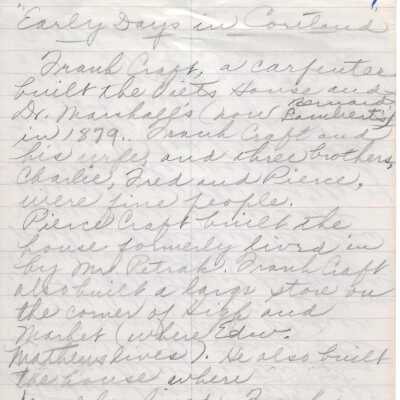 "Early Days in Cortland"
Frank Craft, a carpenter
built the Viets House and
Dr. Marshall's (now Bernard Lamberts)
in 1879. Frank Craft and
his wife, and three brothers,
Charlie, Fred and Pierce,
were fine people.
Pierce Craft built the
house formerly lived in
by Mrs Petrak. Frank Craft
also built a large store on
the corner of High and
Market (where Edw.
Mathews lives). He also built
the house where